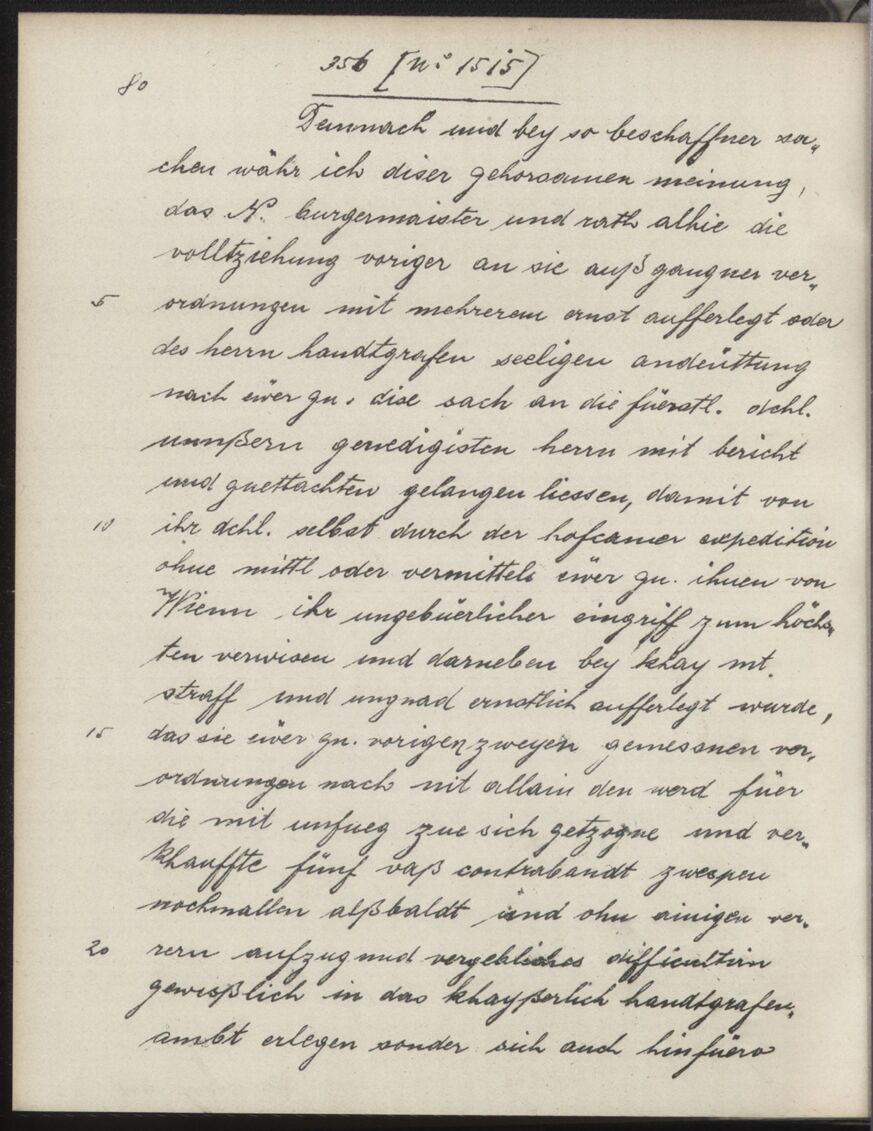 356 [No 1515]
80
Demnach und bey so beschaffner sa„
chen währ ich diser gehorsamen meinung,
das N. burgermaister und rath alhie die
volltziehung voriger an sie außgangner ver„
5 ordnungen mit mehrerem ernst aufferlegt oder
des herrn handtgrafen seeligen andeüttung
nach eüer gn. dise sach an die füerstl. dchl.
unnßern genedigisten herrn mit bericht
und guettachten gelangen liessen, damit von
10 ihr dchl. selbst durch der hofcamer expedition
ohne mittl oder vermittels eüer gn. ihnen von
Wienn ihr ungebüerlicher eingriff zum höchs„
ten verwisen und darneben bey khay mt.
straff und ungnad ernstlich aufferlegt wurde,
15 das sie eüer gn. vorigen zweyen gemessnen ver„
ordnungen nach nit allain den werd füer
die mit unfueg zue sich getzogne und ver„
khauffte fünf vaß contrabandt zwespen
nochmallen alßbaldt und ohn ainigen ver„
20 rern aufzug und vergebliches difficultirn
gewißlich in das khayßerlich handtgrafen„
ambt erlegen sonder sich auch hinfüero